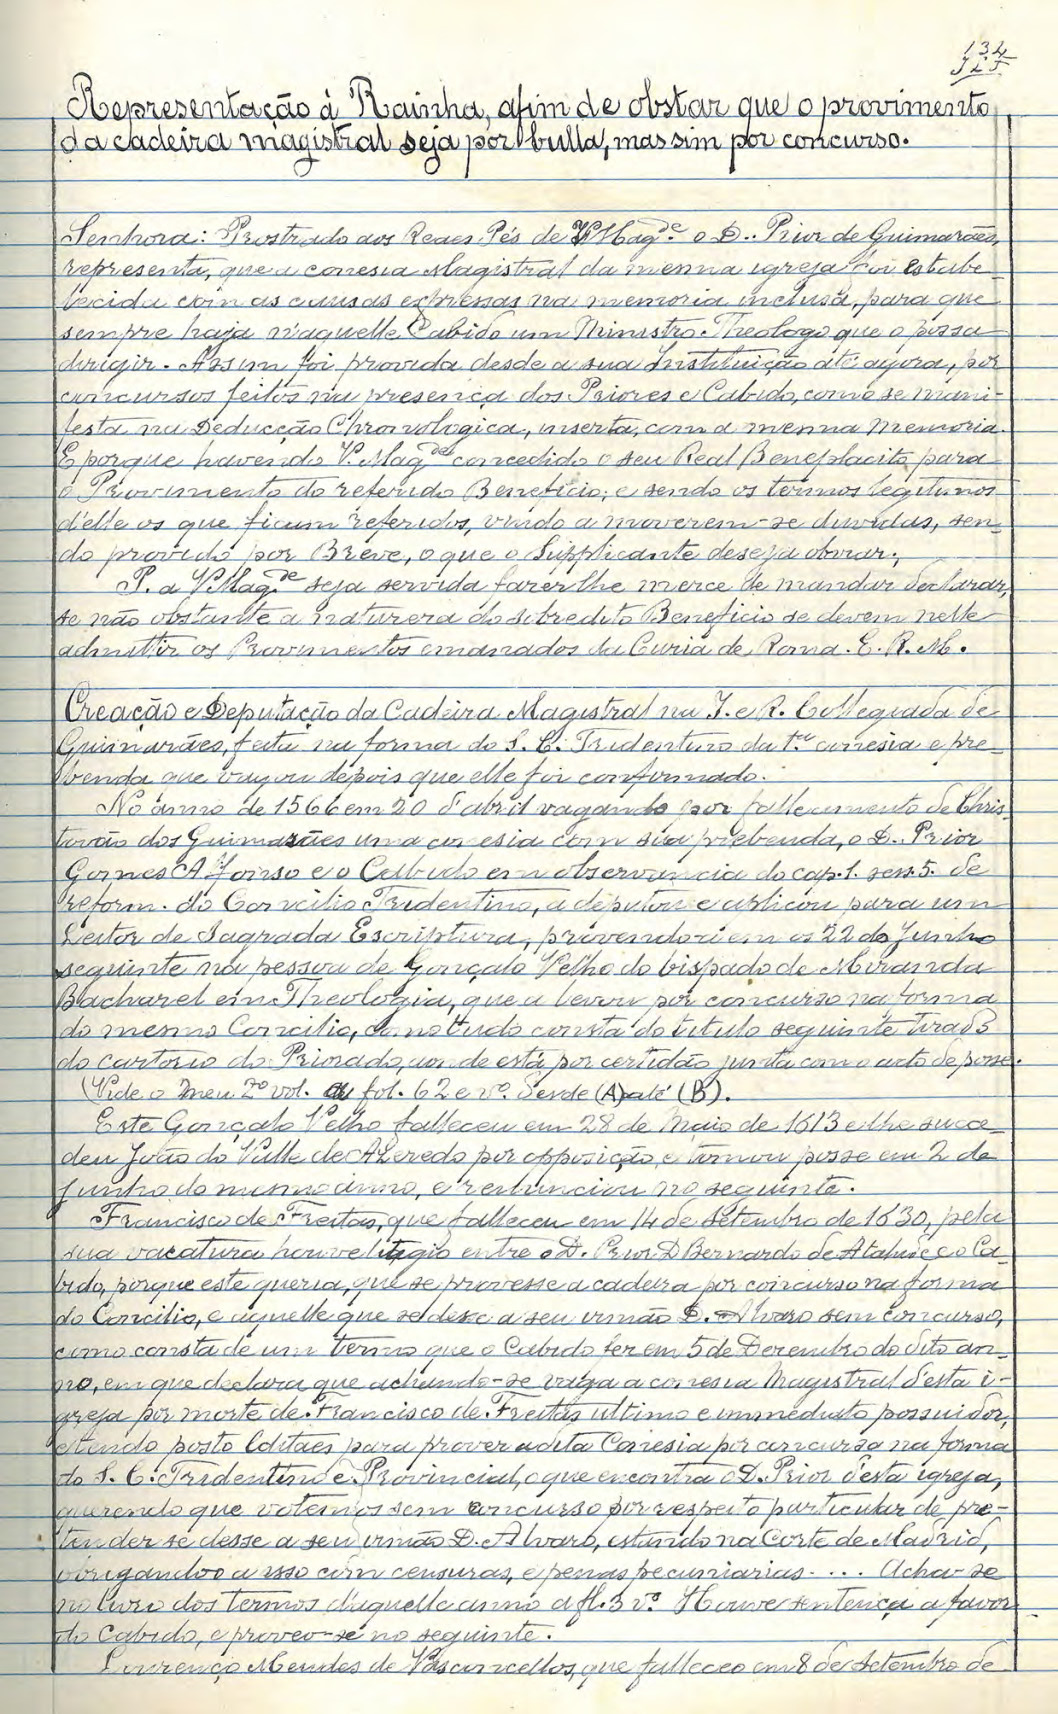 134
Representação á Rainha, afim de obstar que o provimento
da cadeira magistral seja por bulla, mas sim por concurso.
Senhora: Prostrado aos Reaes Pés de V. Mag.de o D. Prior de Guimarães,
representa, que a conesia Magistral da mesma igreja foi estabe-
lecida com as causas expressas na memoria inclusa, para que
sempre haja n'aquelle Cabido um Ministro Theologo que o possa
dirigir. Assim foi provida desde a sua Instituição até agora, por
concursos feitos na presença dos Priores e Cabido, como se mani-
festa na Deducção Chronologica, inserta, com a mesma Memoria.
E porque havendo V. Mag.de concedido o seu Real Beneplacito para
o Provimento do referido Beneficio; e sendo os termos legitimos
d'elle os que ficam referidos, vindo a moverem-se duvidas, sen-
do provido por Breve, o que o Supplicante deseja obviar;
P. a V. Mag.de seja servida fazer lhe merce de mandar declarar,
se não obstante a natureza do sobredito Beneficio se devem nelle
admittir os Provimentos emanados da Curia de Roma. E. R. M.
Creação e Deputação da Cadeira Magistral na I. e R. Collegiada de
Guimarães, feita na forma do S. C. Tridentino da 1.ra conesia e pre-
benda que vagou depois que elle foi confirmado.
No anno de 1566 em 20 d'abril vagando por fallecimento de Chris-
tovão dos Guimarães uma conesia com sua prebenda, o D. Prior
Gomes Afonso e o Cabido em observancia do cap. 1. sess. 5. de
reform. do Concilio Tridentino, a deputou e aplicou para um
Leitor de Sagrada Escriptura, provendo-a em os 22 de Junho
seguinte na pessoa de Gonçalo Velho do bispado de Miranda
Bacharel em Theologia, que a levou por concurso na forma
do mesmo Concilio, como tudo consta do titulo seguinte tirado
do cartorio do Priorado, aonde está por certidão junta com o acto de posse.
(Vide o meu 2º vol. fol. 62 e vº. desde (A) até (B).
Este Gonçalo Velho falleceu em 28 de Maio de 1613 e lhe succe-
deu João do Valle de Azeredo por opposição, e tomou posse em 2 de
Junho do mesmo anno, e renunciou no seguinte.
Francisco de Freitas, que falleceu em 14 de Setembro de 1630, pela
sua vacatura houve litigio entre o D. Prior D. Bernardo de Ataide e o Ca-
bido, porque este queria, que se provesse a cadeira por concurso na forma
do Concilio, e aquelle que se desse a seu irmão D. Alvaro sem concurso,
como consta de um termo que o Cabido fez em 5 de Dezembro do dito an-
no, em que declara que achando-se vaga a conesia Magistral d'esta i-
greja por morte de Francisco de Freitas ultimo e immediato possuidor,
estando posto Editaes para prover a dita Conesia por concurso na forma
do S. C. Tridentino e Provincial, o que encontra o D. Prior d'esta igreja,
querendo que votemos sem concurso por respeito particular de pre-
tender se desse a seu irmão D. Alvaro, estando na Corte de Madrid,
obrigando-o a isso com censuras, e penas pecuniarias.... Acha-se
no livro dos termos d'aquelle anno a fl. 3 vº. Houve sentença a favor
do Cabido, e proveo-se no seguinte.
Lourenço Mendes de Vasconcellos, que falleceo em 8 de Setembro de